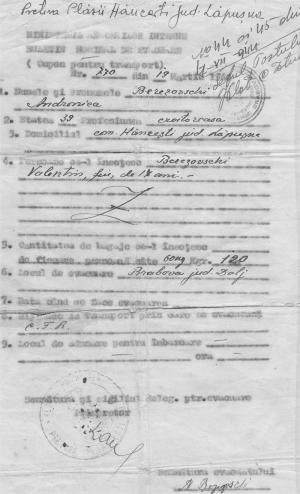 Pretura Plăşii Hănceşti jud. Lăpuşna
MINISTERUL AFACERILOR INTERNE
BULETIN NOMINAL DE EVACUARE
( Cupon pentru transport)
Nr. 770 din 19 Martie
1. Numele şi Pronumele Berezovschi
Andronica
2. Etatea 39 Profesiunea croitoreasa
3. Domiciliul com. Hănceşti jud. Lăpuşna
4. Persoane ce-l însoţesc Berezovschi
Valentin, fiu, de 14 ani. -
5. Cantitatea de bagaje ce-l însoţesc
de fiecare persoană câte 60 kg Kgr. 120
6. Locul de evacuare Brabova jud. Dolj
7. Data când se face evacuarea
8. Mijlocul de transport prin care se evacuează
C.F.R.
9. Locul de adunare pentru îmbarcare —
— ora —
Semnătura şi sigiliul deleg. ptr. evacuare
Pretor
Semnătura evacuatului